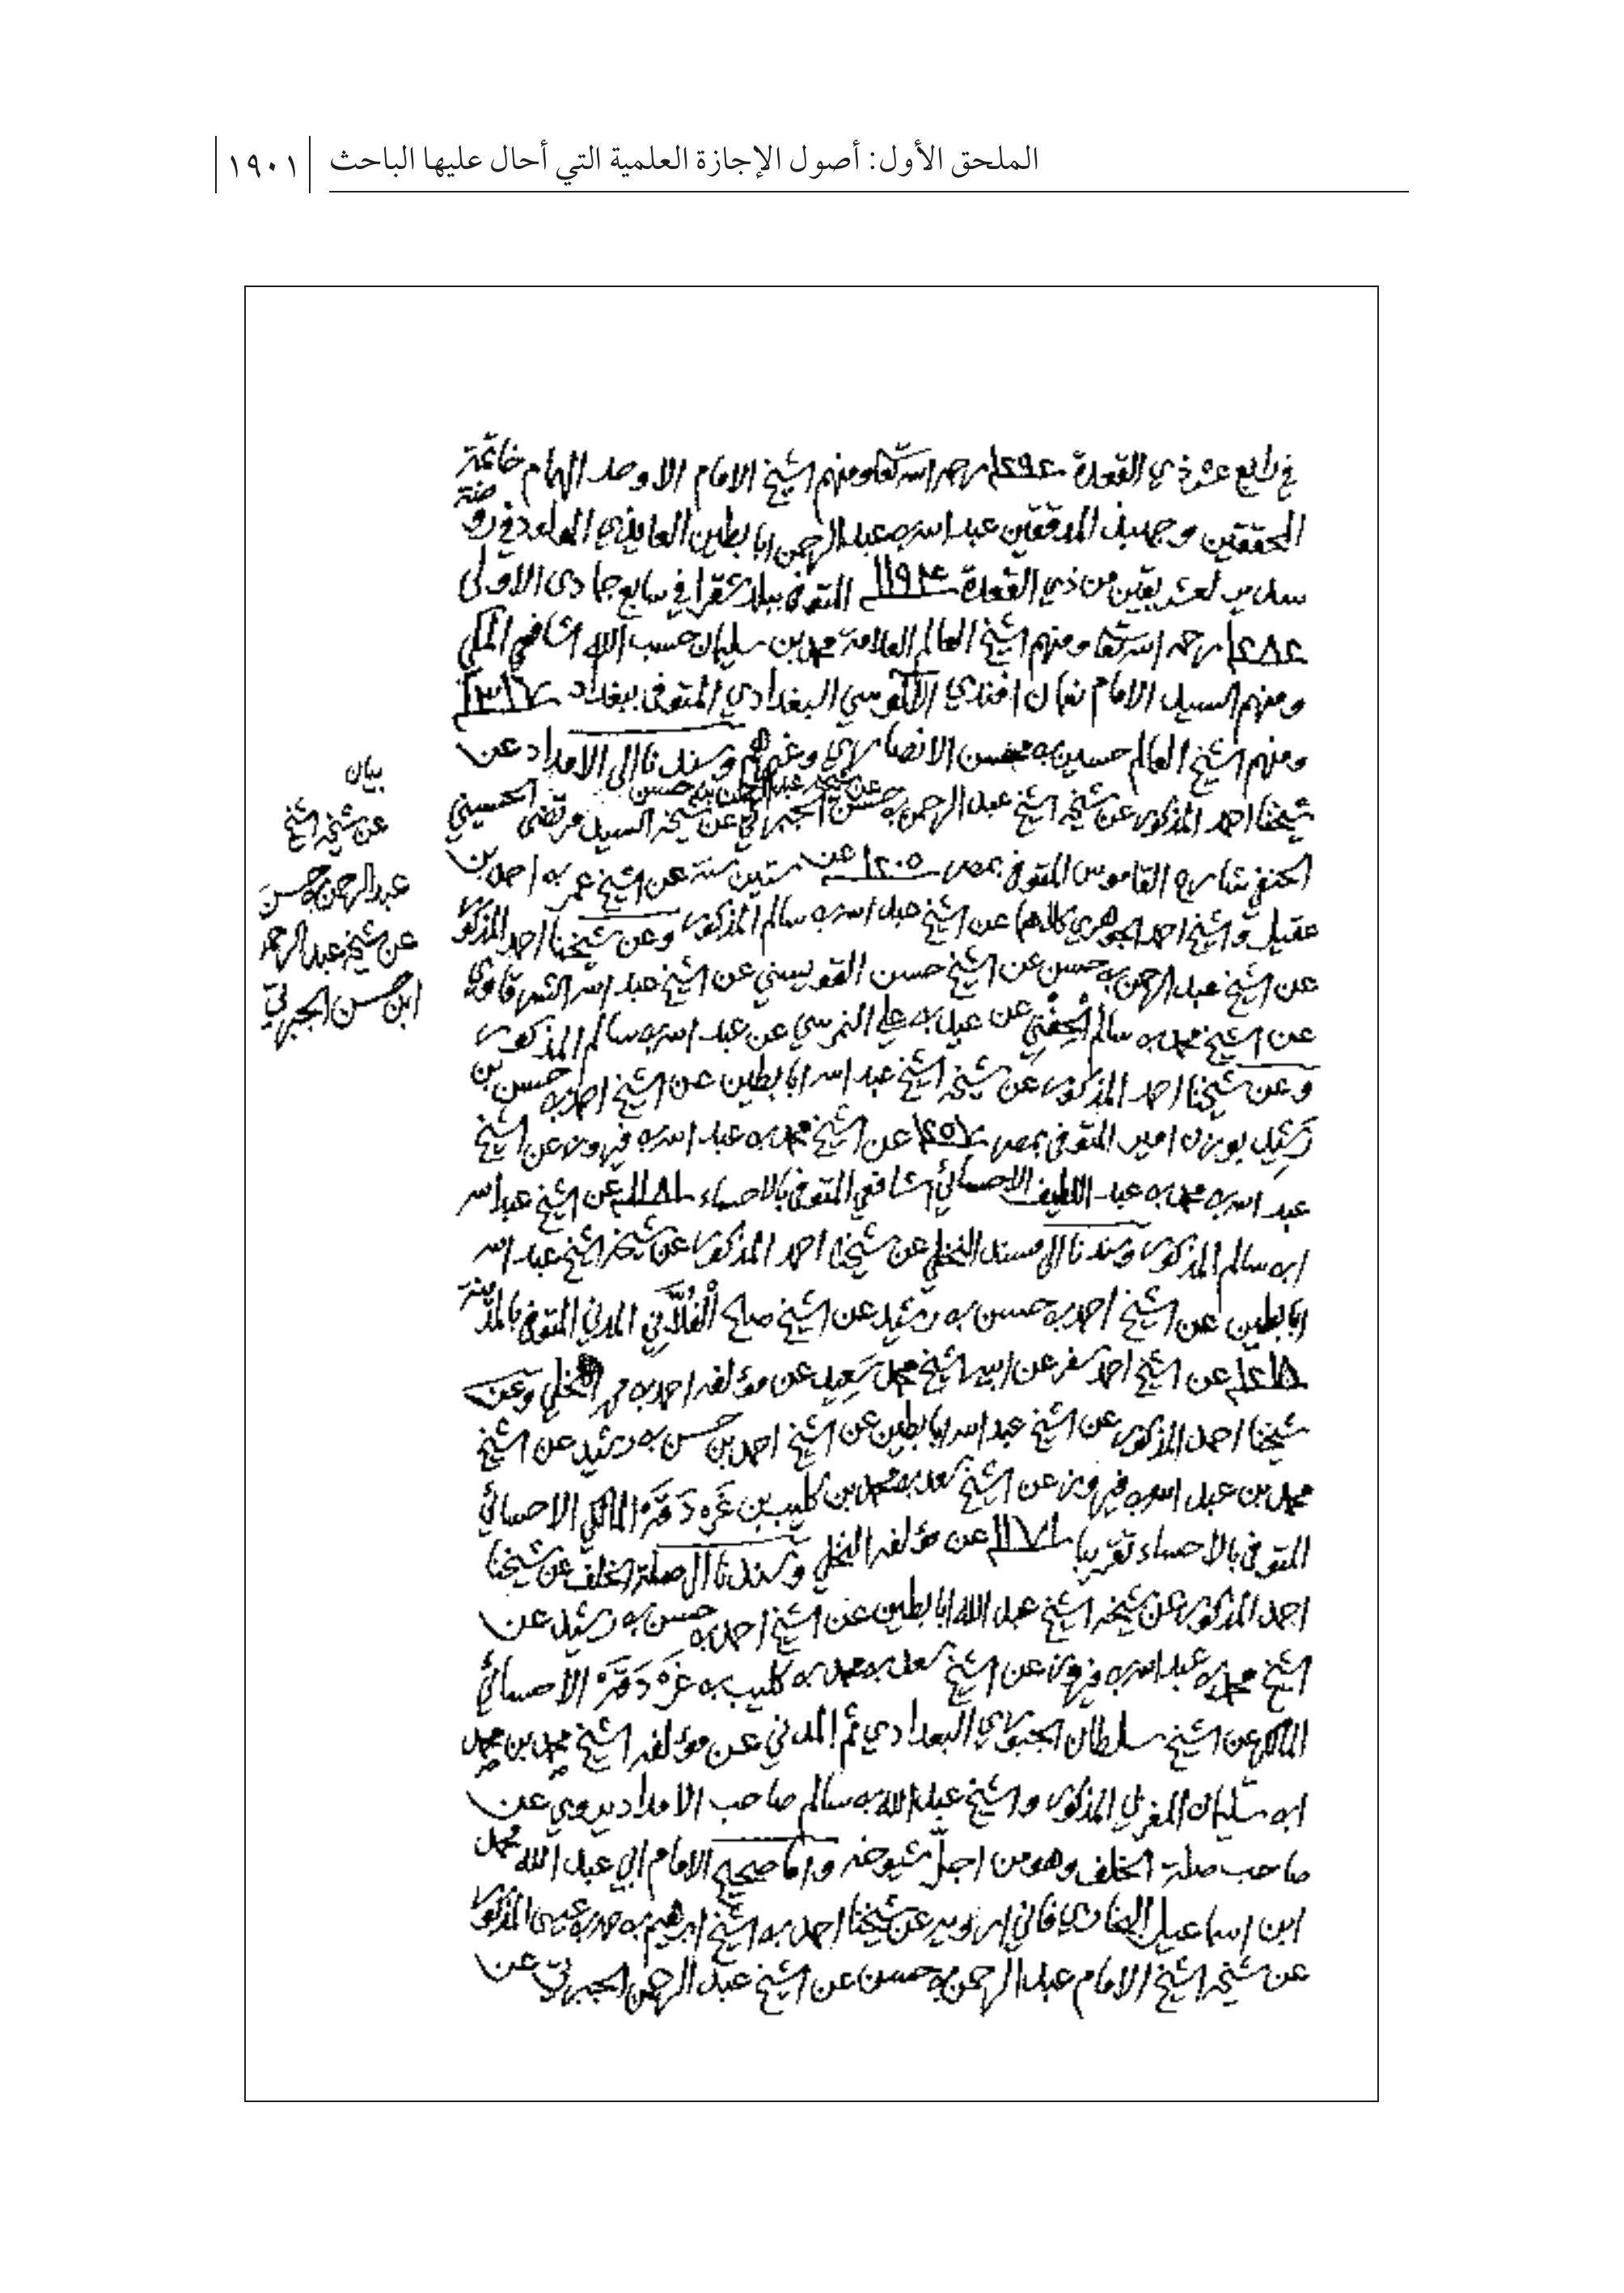 الملحق الأول: أصول الإجازة العلمية التي أحال عليها الباحث
١٩٠١
في رابع عشر ذي القعدة ١٢٩٣ رحمه الله تعا ومنهم الشيخ الامام الاوحد الهمام خاتمة
المحققين وجهبذ المدققين عبد الله بن عبد الرحمن ابابطين العايذي المولود في روضة
سدير لعشر بقين من ذي القعدة ١١٩٤ المتوفى ببلد شقرا في سابع جمادى الاولى
١٢٨٢ رحمه الله تعا ومنهم الشيخ العالم العلامة محمد بن سليمان حسب الله الشافعي المكي
ومنهم السيد الامام نعمان افندي الآلوسي البغدادي المتوفى ببغداد ١٣١٧
ومنهم الشيخ العالم حسين بن محسن الانصاري وغيرهم وسندنا الى الامداد عن
شيخنا احمد المذكور عن شيخه الشيخ عبد الرحمن بن حسن الجبرتي عن شيخه السيد مرتضى الحسيني
عن شيخه عبد الرحمن بن حسن
الحنفي شارح القاموس المتوفى بمصر ١٢٠٥ عن ستين سنة عن الشيخ عمر بن احمد بن
عقيل والشيخ احمد الجوهري كلاهما عن الشيخ عبد الله بن سالم المذكور وعن شيخنا احمد المذكور
عن الشيخ عبد الرحمن بن حسن عن الشيخ حسن القويسني عن الشيخ عبد الله الشرقاوي
عن الشيخ محمد بن سالم الحفني عن عيد بن علي النمرسي عن عبد الله بن سالم المذكور
وعن شيخنا احمد المذكور عن شيخه الشيخ عبد الله ابابطين عن الشيخ احمد بن حسن بن
رشيد بوزن امير المتوفى بمصر ١٢٥٧ عن الشيخ محمد بن عبد الله بن فيروز عن الشيخ
عبد الله بن محمد بن عبد اللطيف الاحسائي الشافعي المتوفى بالاحساء ١١٨١ عن الشيخ عبد الله
ابن سالم المذكور وسندنا الى مسند النخلي عن شيخنا احمد المذكور عن شيخه الشيخ عبد الله
ابابطين عن الشيخ احمد بن حسن بن رشيد عن الشيخ صالح الفُلَّاني المدني المتوفى بالمدينة
١٢١٨ عن الشيخ احمد سفر عن ابيه الشيخ محمد سَعِيد عن مؤلفه احمد بن محمد النخلي وعن
شيخنا احمد المذكور عن الشيخ عبد الله ابابطين عن الشيخ احمد بن حسن بن رشيد عن الشيخ
محمد بن عبد الله بن فيروز عن الشيخ سعد بن محمد بن كليب بن غَرْدَقَة المالكي الاحسائي
المتوفى بالاحساء تقريبا ١١٧١ عن مؤلفه النخلي وسندنا الى صلة الخلف عن شيخنا
احمد المذكور عن شيخه الشيخ عبد الله ابابطين عن الشيخ احمد بن حسن بن رشيد عن
الشيخ محمد بن عبد الله بن فيروز عن الشيخ سعد بن محمد بن كليب بن غَرْدَقَة الاحسائي
المالكي عن الشيخ سلطان الجبوري البغدادي ثم المدني عن مؤلفه الشيخ محمد بن محمد
ابن سليمان المغربي المذكور والشيخ عبد الله بن سالم صاحب الامداد يروي عن
صاحب صلة الخلف وهو من اجلّ شيوخه واما صحيح الامام ابي عبد الله محمد
ابن اسماعيل البخاري فاني ارويه عن شيخنا احمد بن الشيخ ابرهيم بن حمد بن عيسى المذكور
عن شيخه الشيخ الامام عبد الرحمن بن حسن عن الشيخ عبد الرحمن الجبرتي عن
بيان
عن شيخه الشيخ
عبد الرحمن بن حسن
عن شيخه عبد الرحمن
ابن حسن الجبرتي